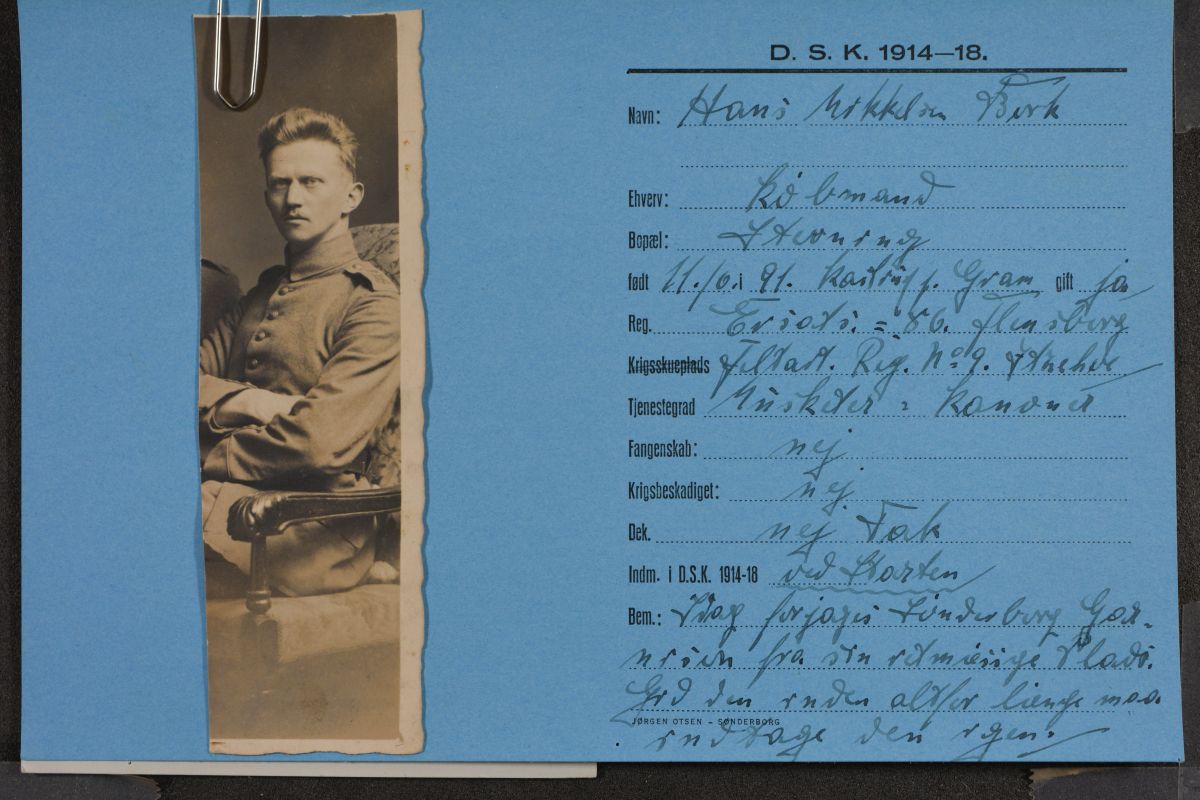 D. S. K. 1914—18.
Navn: Hans Mikkelsen Birk
Ehverv: Köbmand
Bopæl: Stevning
født 11./6. i 91. Kastrup p. Gram gift ja
Reg. Ersats. = 86. Flensborg
Krigsskueplads Feltart. Reg. No 9. Itzehoe
Tjenestegrad Musketer = Kanoner
Fangenskab: nej
Krigsbeskadiget: nej
Dek. nej Tak
Indm. i D.S.K. 1914-18 ved Starten
Bem.: Idag forjages Sönderborg Gar-
nison fra sin retmæssige Plads.
Gid den inden altfor længe maa
JØRGEN OTSEN - SØNDERBORG
indtage den igen.